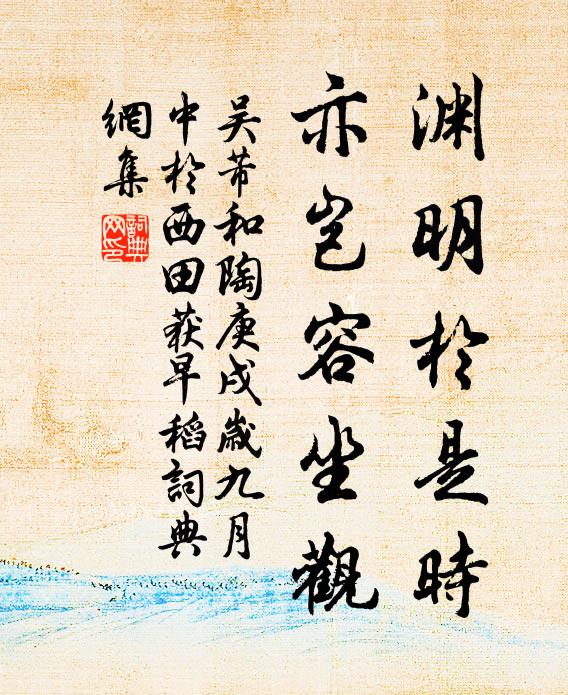 渊明於是時
亦岂容坐觀
吴芾和陶庚戌歲九月
中於西田获早稻詞典
網集
詞典
网印